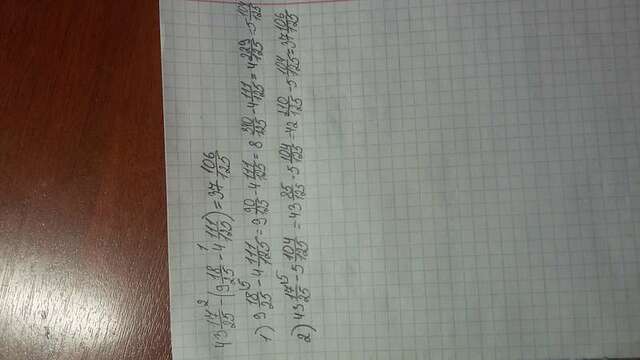 43 17/25 ² - (9 18/25 -¹ 4 111/125) = 37 106/125
1) 9 18/25 ⁵ - 4 111/125 = 9 90/125 - 4 111/125 = 8 340/125 - 4 111/125 = 4 229/125 - 5 104/125
2) 43 17/25 ⁵ - 5 104/125 = 43 85/125 - 5 104/125 - 42 210/125 - 5 104/125 = 37 106/125